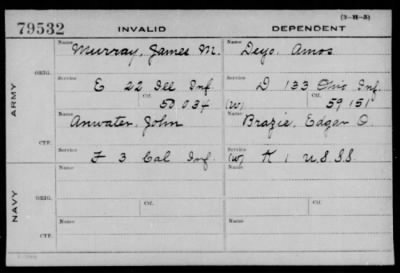 (3-H-5)
79532 INVALID DEPENDENT
ARMY
ORIG.
Name Murray, James M. Name Deyo, Amos
Service Service
E 22 Ill Inf. D 133 Ohio Inf.
Ctf. 50 034 (W) Ctf. 59 151
CTF.
Name Anwater, John Name Brazie, Edgar O.
Service Service
F 3 Cal Inf (W) K 1 U.S.S.S.
NAVY
ORIG.
Name Name
Service Ctf. Service Ctf.
CTF.
Name Name
Service Service